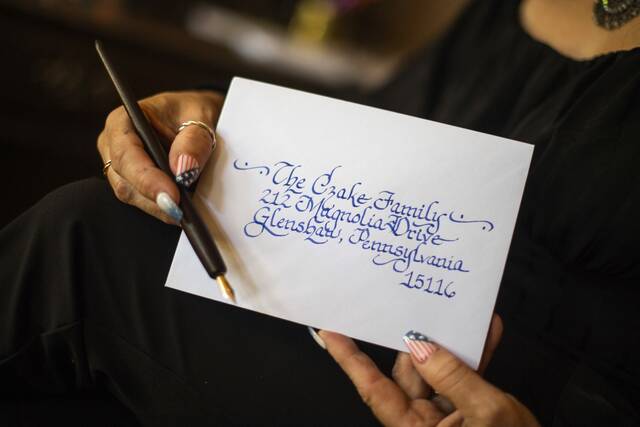 The Czake Family
212 Magnolia Drive
Glenshaw, Pennsylvania
15116